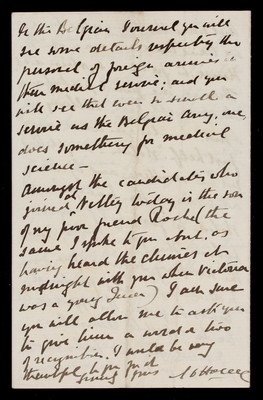 In the Belgian Journal you will
see some details respecting the
personel of foreign armies &
their medical service; and you
will see that even so small a
service as the Belgian Army, one,
does something for medical
science —
Amongst the candidates who
joined at Netley today is the son
of my poor friend Roch (the
same I spoke to you about, as
having heard the chimes at
midnight with you when Victoria
was a young Queen) I am sure
you will allow me to ask you
to give him a word or two
of recognition. I would be very
thankful to you for it
yours